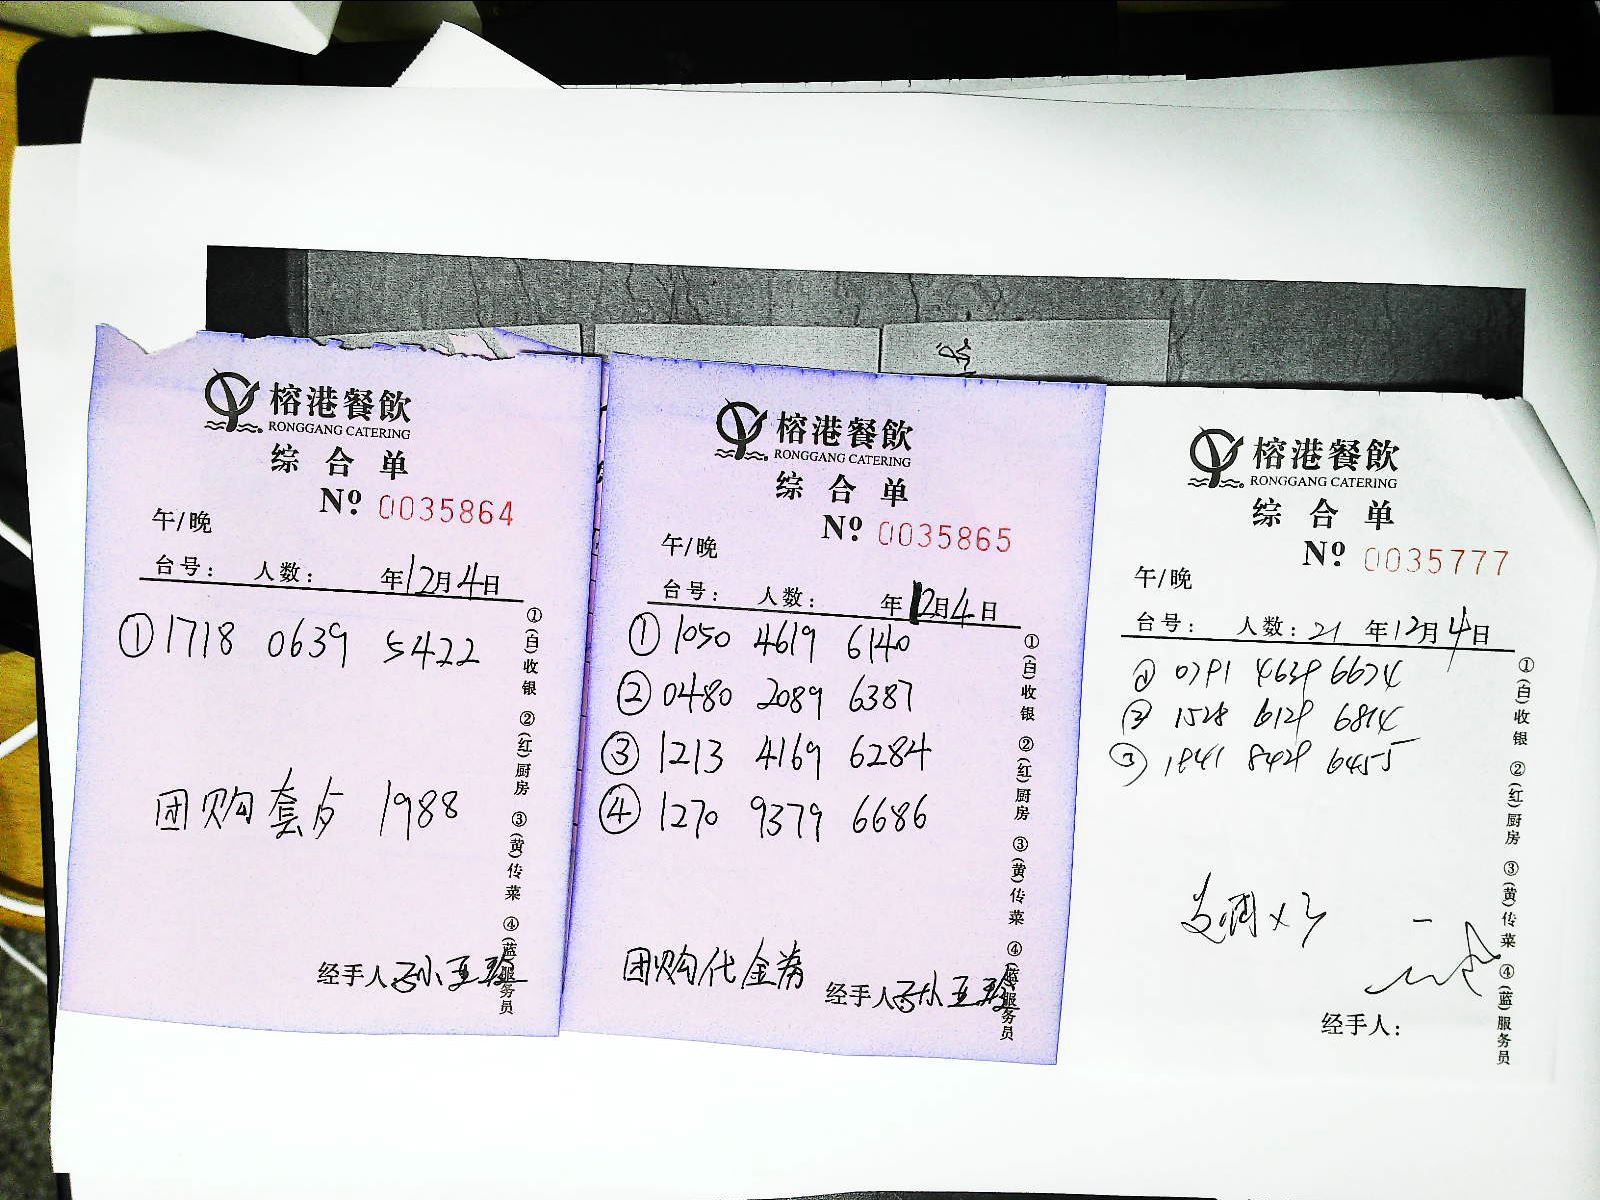 榕港餐飲
RONGGANG CATERING
综合单
Nº 0035864
午/晚
台号： 人数： 年12月4日
①1718 0639 5422
团购套占 1988
经手人孙亚玲
①(白)收银 ②(红)厨房 ③(黄)传菜 ④(蓝)服务员
榕港餐飲
RONGGANG CATERING
综合单
Nº 0035865
午/晚
台号： 人数： 年12月4日
①1050 4619 6140
②0480 2089 6387
③1213 4169 6284
④1270 9379 6686
团购代金券
经手人孙亚玲
①(白)收银 ②(红)厨房 ③(黄)传菜 ④(蓝)服务员
榕港餐飲
RONGGANG CATERING
综合单
Nº 0035777
午/晚
台号： 人数：21 年12月4日
① 0791 4639 6674
② 1528 6129 6814
③ 1841 8429 6455
美团x3
经手人：
①(白)收银 ②(红)厨房 ③(黄)传菜 ④(蓝)服务员